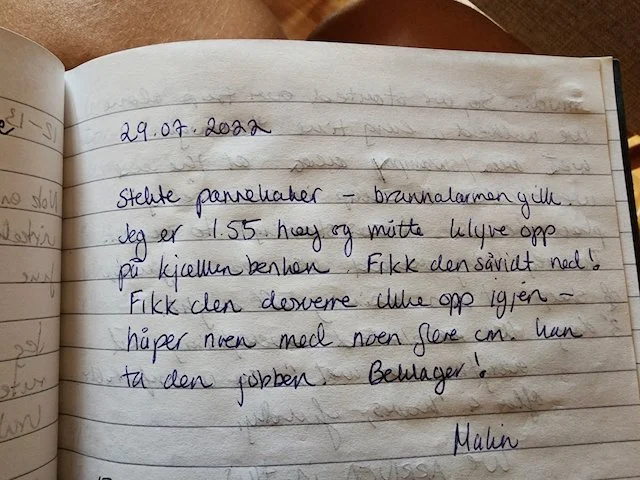 29.07.2022
Stekte pannekaker - brannalarmen gikk.
Jeg er 1.55 høy og måtte klyve opp
på kjøkkenbenken. Fikk den såvidt ned!
Fikk den desverre ikke opp igjen -
håper noen med noen flere cm. kan
ta den jobben. Beklager!
Malin